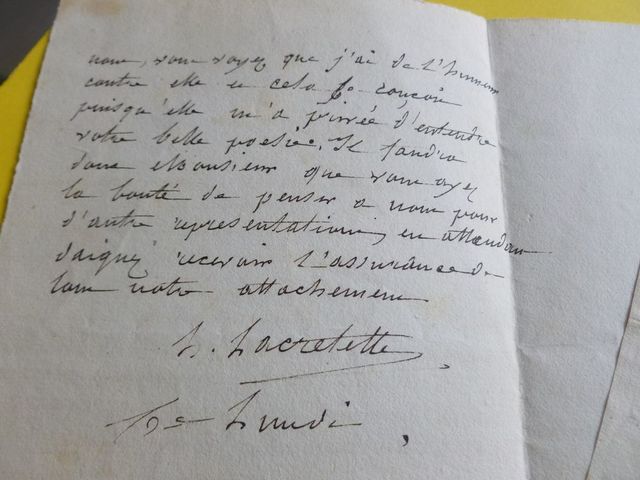 nous, vous voyez que j'ai de l'humeur
contre elle et cela se conçoit
puisqu'elle m'a privée d'entendre
votre belle poésie, Il faudra
donc Monsieur que vous ayez
la bonté de penser a nous pour
d'autre representations, en attendant
daignez recevoir l'assurance de
tout notre attachement
L. Lacretelle,
Ce Lundi,